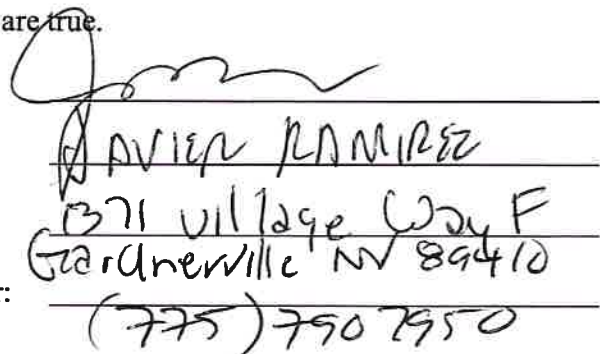 are true.
JAVIER RAMIREZ
1371 Village Way F
Gardnerville NV 89410
r:
(775) 790 7950